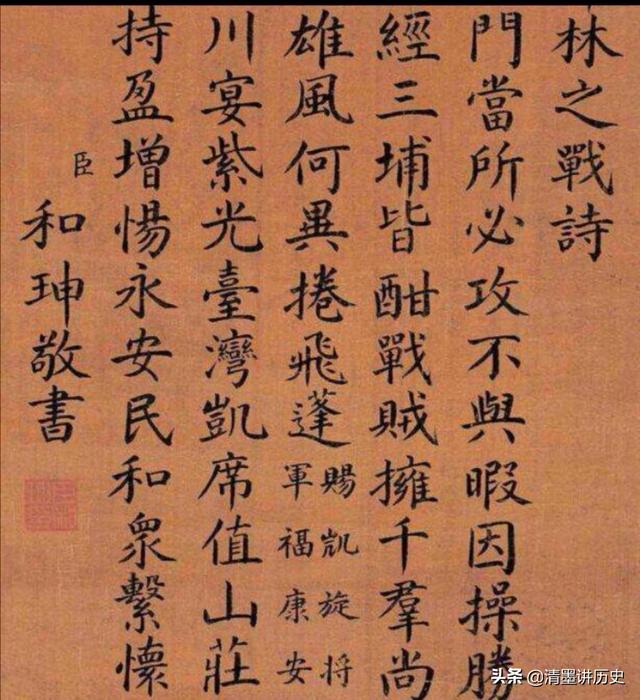 林之戰詩
門當所必攻不與暇因操勝
經三埔皆酣戰賊擁千羣尚
雄風何異捲飛蓬
賜凱旋將
軍福康安
川宴紫光臺灣凱席值山莊
持盈增惕永安民和衆繫懷
臣和珅敬書
头条 @清墨讲历史